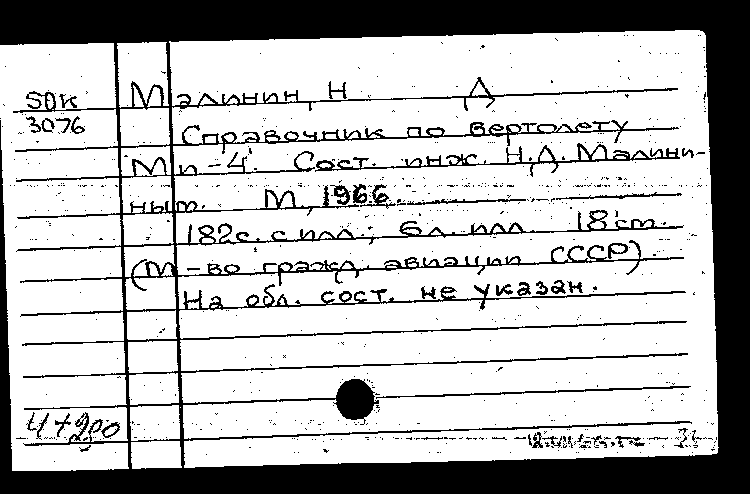 SDK Малинин, Н Д
3076
Справочник по вертолету
Ми-4. Сост. инж. Н.Д. Малини-
ным. М, 1966.
182с. с илл.; 6 л. илл. 18 см.
(М-во гражд. авиации СССР).
На обл. сост. не указан.
4+200